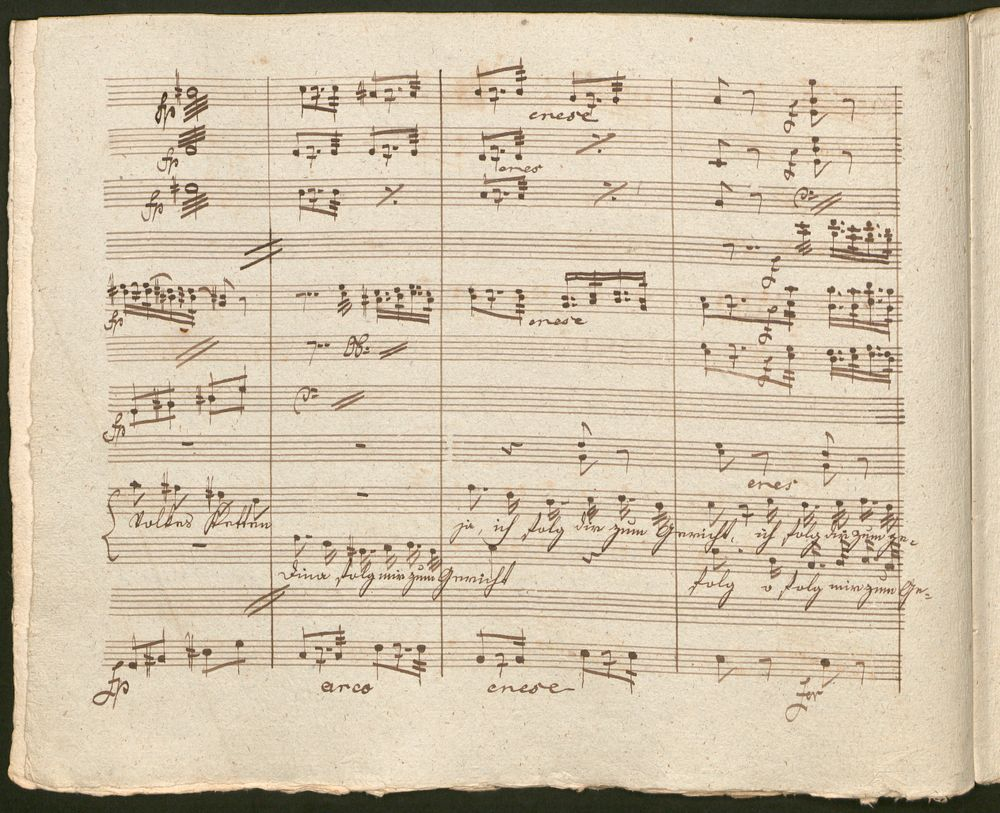 fp
cresc
fp
cres
fp
fp
cresc
Ob:
fp
cres
Volkes Retten ja, ich folg dir zum Gericht, ich folg dir zum ge-
Dina folg mir zum Gericht folg o folg mir zum Ge-
fp
arco
cresc
for